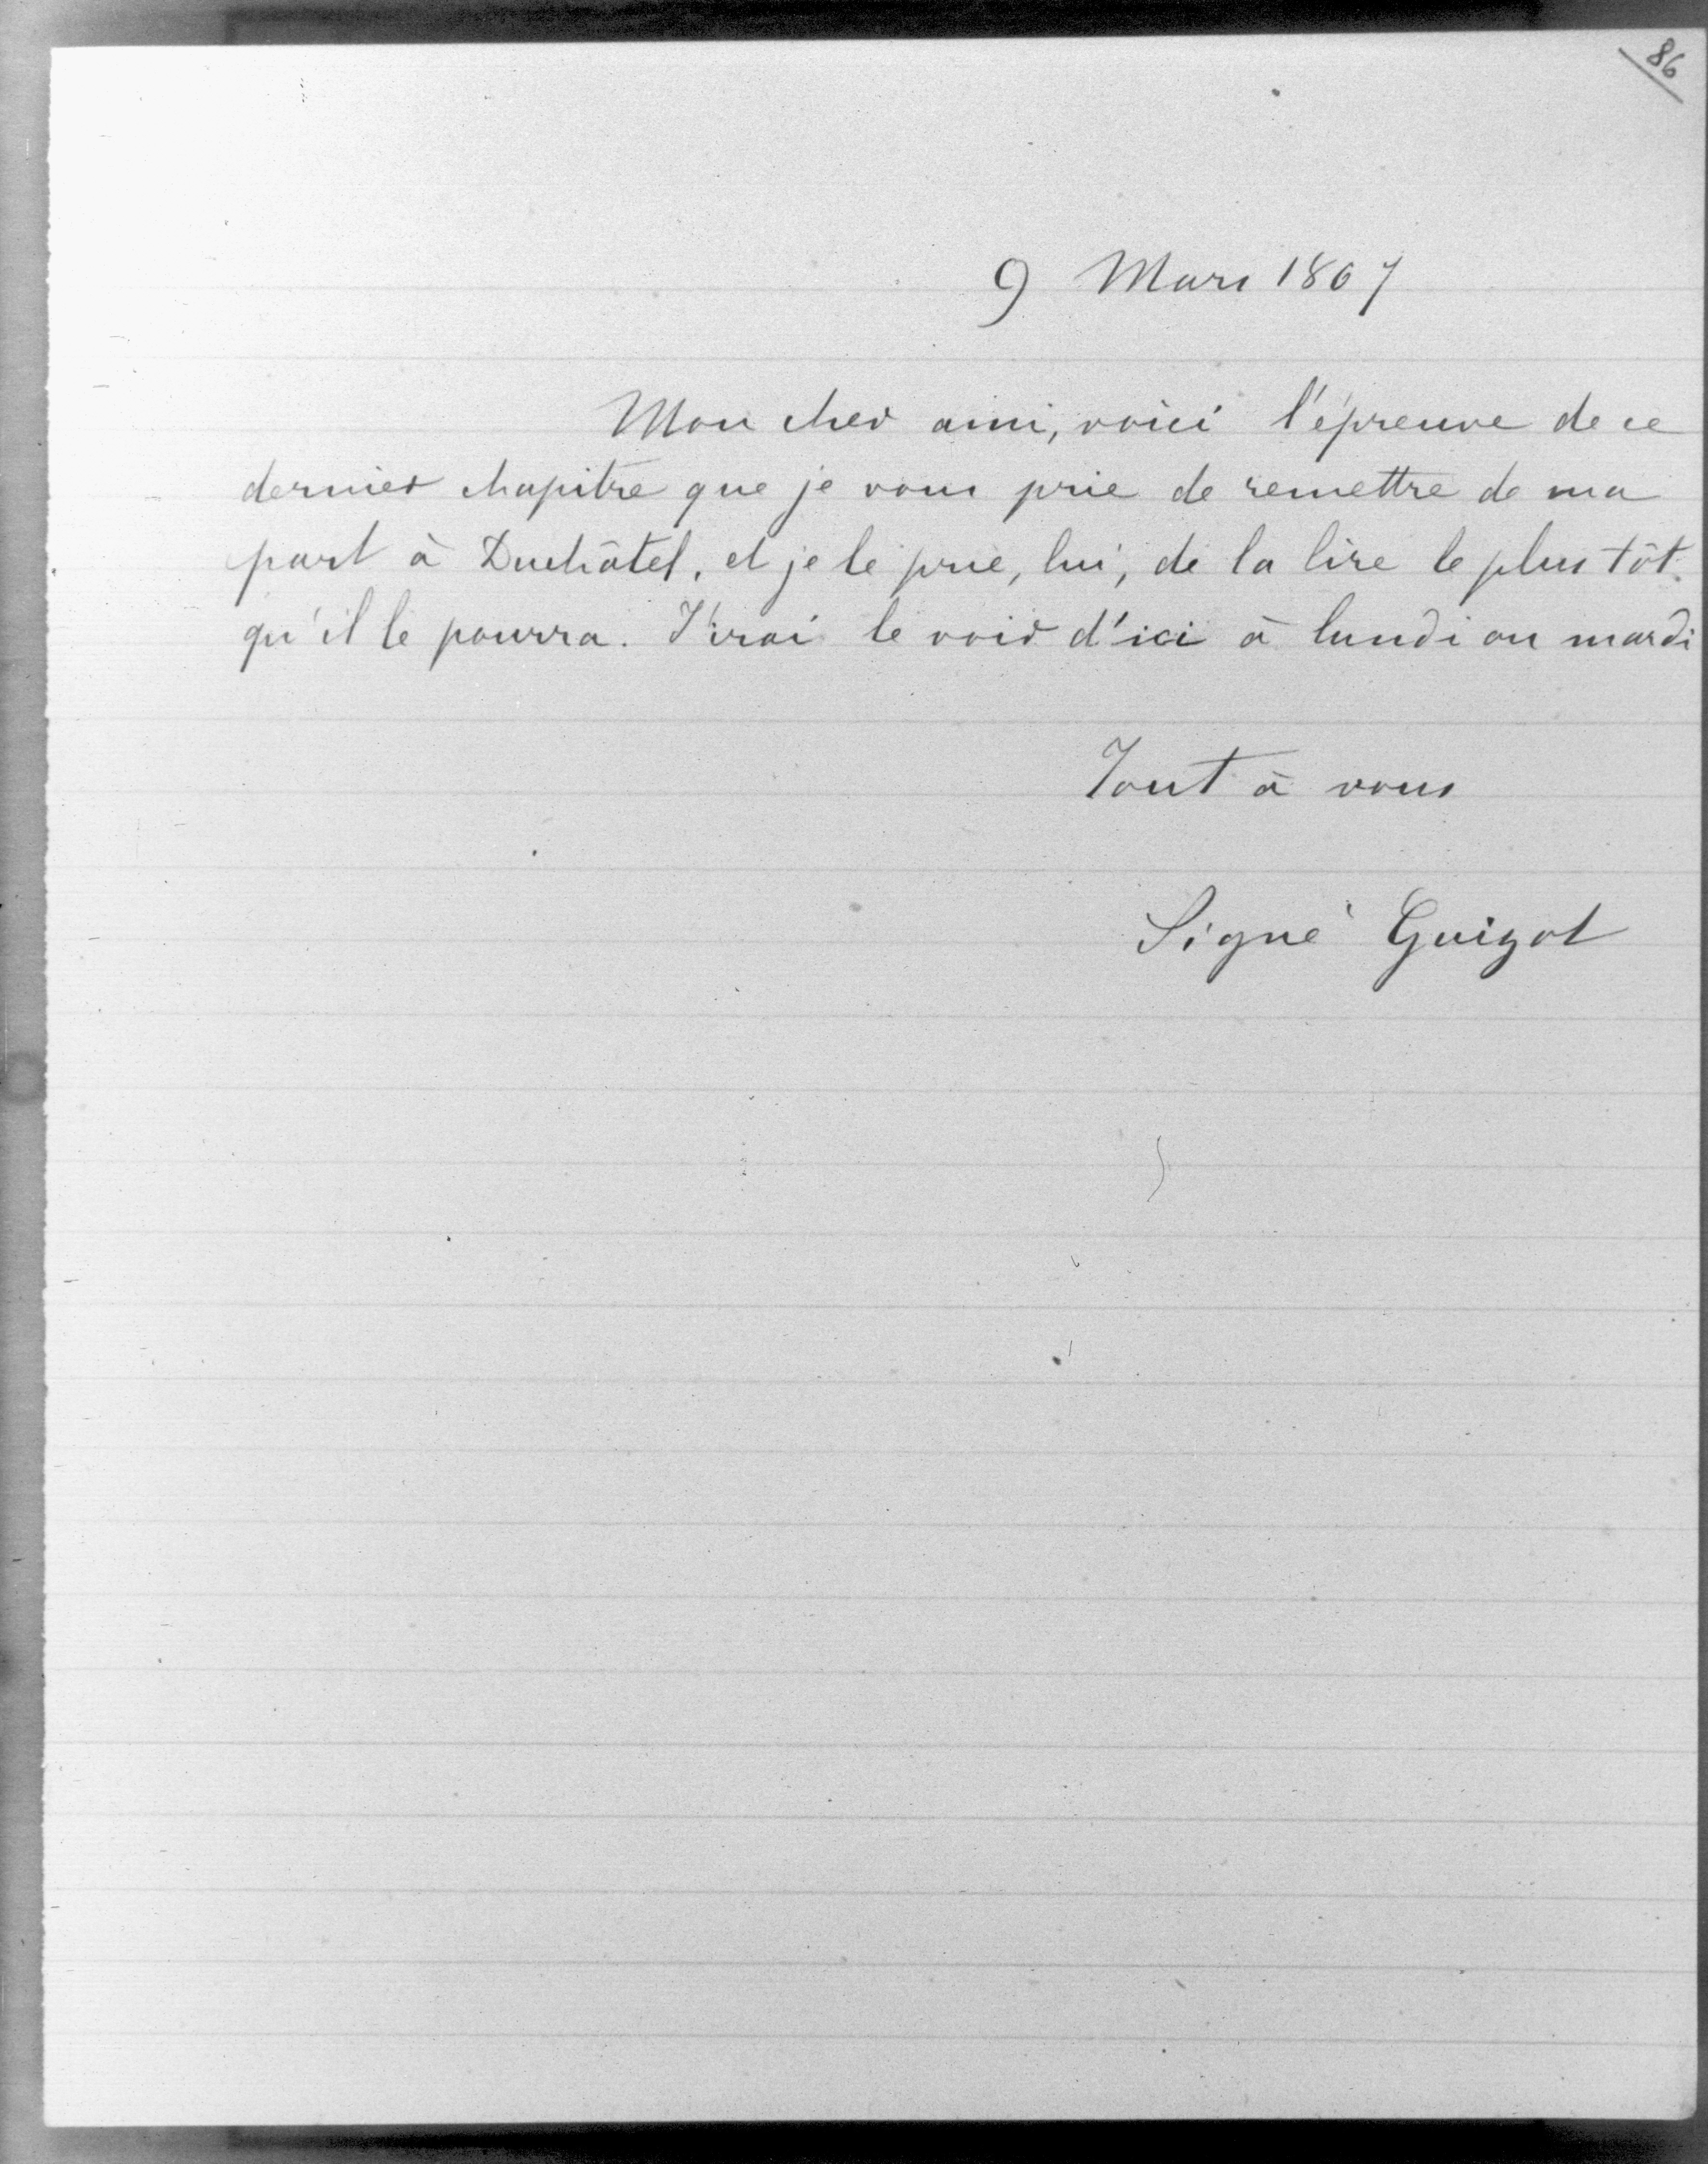 86
9 Mars 1867
Mon cher ami, voici l'épreuve de ce
dernier chapitre que je vous prie de remettre de ma
part à Duchâtel, et je le prie, lui, de la lire le plus tôt
qu'il le pourra. J'irai le voir d'ici à lundi ou mardi
Tout à vous
Signé Guizot